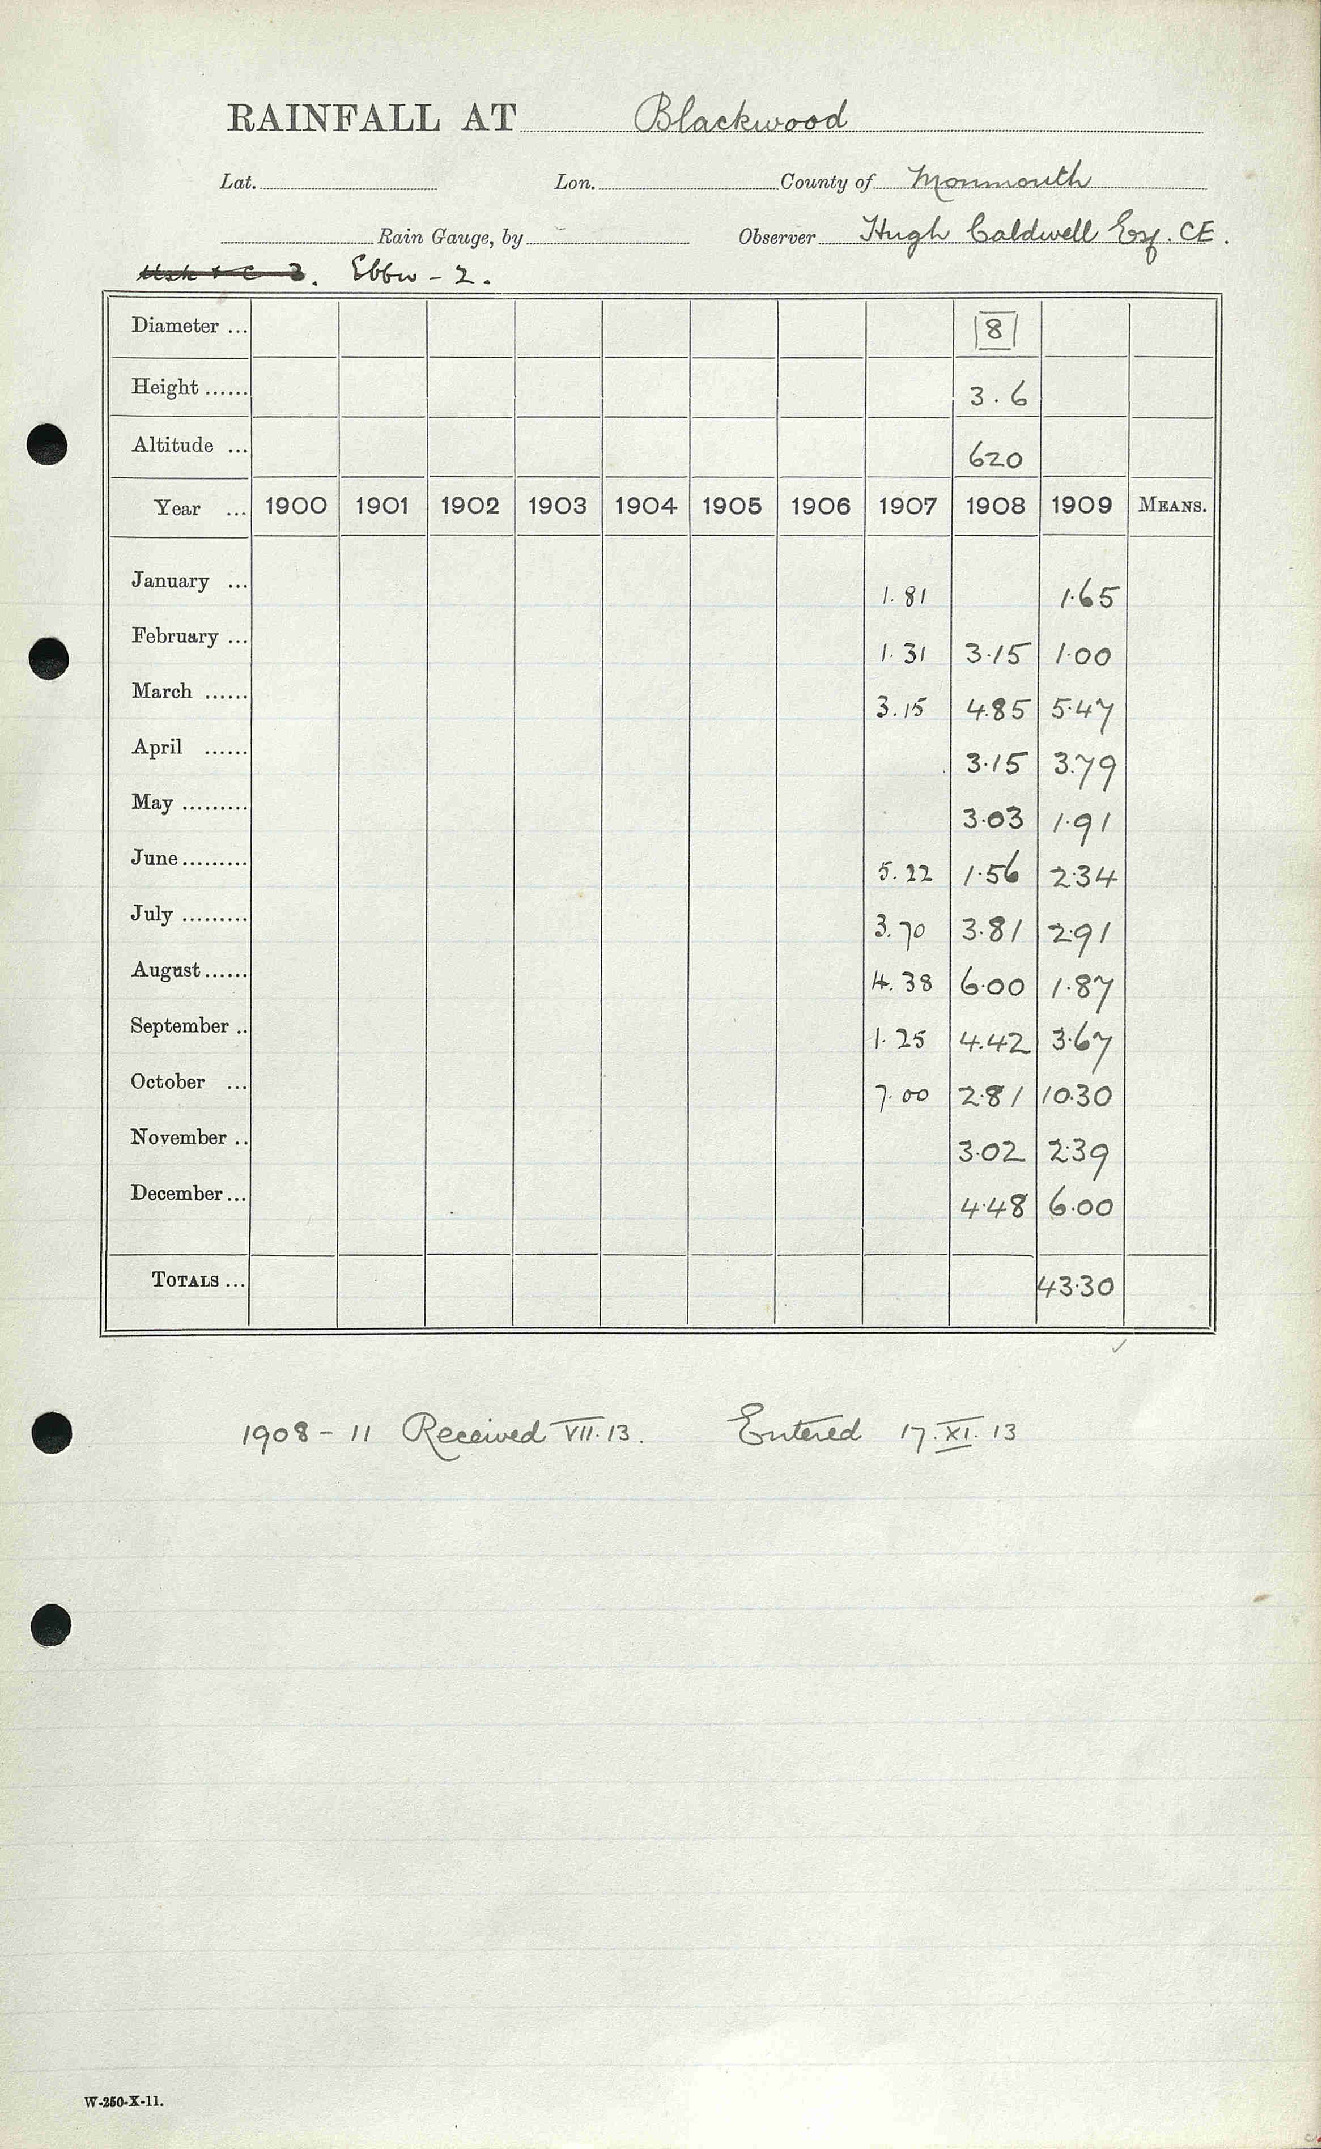 RAINFALL AT Blackwood
Lat. Lon. County of Monmouth
Rain Gauge, by Observer Hugh Caldwell Esq. CE.
Ebbw - 2.
Diameter ... 8
Height ...... 3.6
Altitude ... 620
Year ... 1900 1901 1902 1903 1904 1905 1906 1907 1908 1909 MEANS.
January ... 1.81 1.65
February ... 1.31 3.15 1.00
March ...... 3.15 4.85 5.47
April ...... 3.15 3.79
May ......... 3.03 1.91
June ......... 5.22 1.56 2.34
July ......... 3.70 3.81 2.91
August ...... 4.38 6.00 1.87
September .. 1.25 4.42 3.67
October ... 7.00 2.81 10.30
November .. 3.02 2.39
December ... 4.48 6.00
TOTALS ... 43.30
1908 - 11 Received VII.13. Entered 17.XI.13
W-250-X-11.